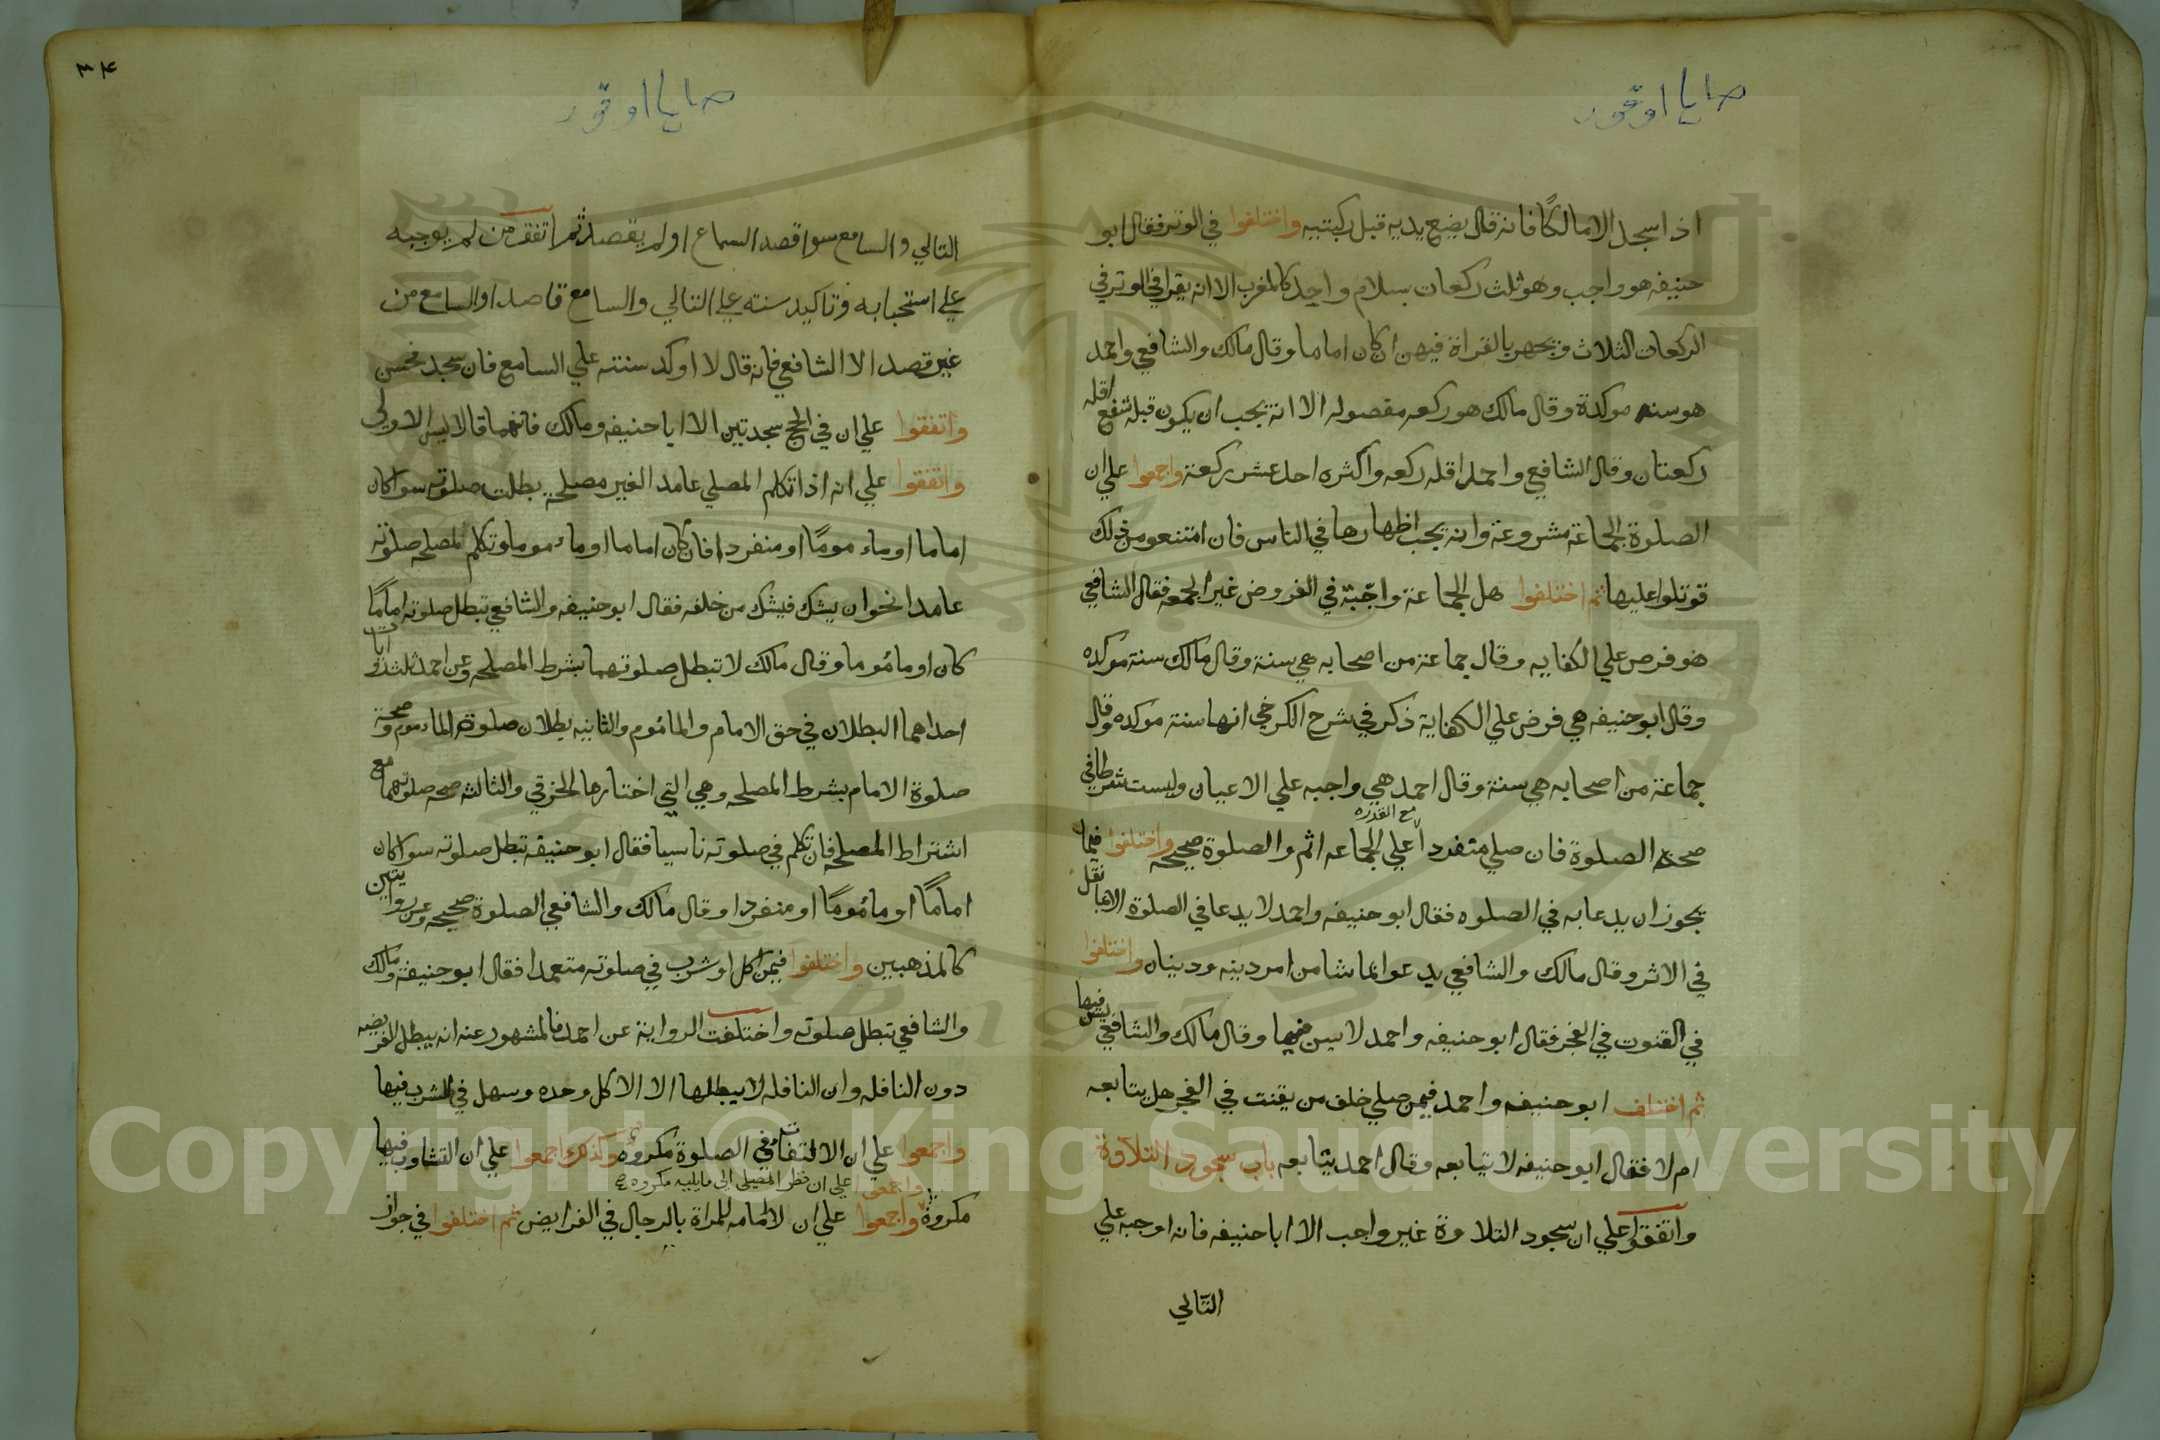 اذا سجد الا مالكًا فانه قال يضع يديه قبل ركبتيه واختلفوا في الوتر فقال ابو
حنيفه هو واجب وهو ثلث ركعات بسلام واحد كالمغرب الا انه يقرا في الوتر في
الركعات الثلاث ويجهر بالقراة فيهن ان كان اماما وقال مالك والشافعي واحمد
هو سنه موكدة وقال مالك هو ركعه مفصوله الا انه يجب ان يكون قبله شفع اقله
ركعتان وقال الشافعي واحمد اقله ركعه واكثره احد عشر ركعة واجمعوا علي ان
الصلوة الجماعة مشروعة وانه يجب اظهارها في الناس فان امتنعو من ذلك
قوتلوا عليها ثم اختلفوا هل الجماعة واجبة في الفروض غير الجمعه فقال الشافعي
هو فرض علي الكفايه وقال جماعة من اصحابه هي سنة وقال مالك سنة موكده
وقال ابو حنيفه هي فرض علي الكفاية ذكر في شرح الكرخي انها سنة موكده وقال
جماعة من اصحابه هي سنة وقال احمد هي واجبه علي الاعيان وليست شرطا في
صحة الصلوة فان صلي منفردا مع القدره علي الجماعه اثم والصلوة صحيحه واختلفوا فيما
يجوز ان يدعا به في الصلوه فقال ابو حنيفه واحمد لا يدعا في الصلوة الا بما نقل
في الاثر وقال مالك والشافعي يدعوا بما شا من امر دينه ودنياه واختلفوا
في القنوت في الفجر فقال ابو حنيفه واحمد لا يسن فيها وقال مالك والشافعي يسن فيها
ثم اختلف ابو حنيفه واحمد فيمن صلي خلف من يقنت في الفجر هل يتابعه
ام لا فقال ابو حنيفه لا يتابعه وقال احمد يتابعه باب سجود التلاوة
واتفقوا علي ان سجود التلاوة غير واجب الا ابا حنيفه فانه اوجبه علي
التالي
٣٤
التالي والسامع سوا قصد السماع او لم يقصد ثم اتفق من لم يوجبه
علي استحبابه وتاكيد سنته علي التالي والسامع قاصدا والسامع من
غير قصد الا الشافعي فانه قال لا اوكد سنته علي السامع فان سجد فحسن
واتفقوا علي ان في الحج سجدتين الا ابا حنيفه ومالك فانهما قالا ليس الا الاولي
واتفقوا علي انه اذا تكلم المصلي عامدا لغير مصلحة بطلت صلوته سوا كان
اماما او ماء موما او منفردا فان كان اماما او ماء موما وتكلم لمصلحه صلوته
عامدا نحو ان يشك فيشك من خلفه فقال ابو حنيفه والشافعي تبطل صلوته اماما
كان او ماموما وقال مالك لا تبطل صلوتهما بشرط المصلحه وعن احمد ثلث روايات
احداهما البطلان في حق الامام والماموم والثانيه بطلان صلوة الماءموم وصحة
صلوة الامام بشرط المصلحه وهي التي اختارها الخرقي والثالثه صحه صلوتهما مع
اشتراط المصلحه فان تكلم في صلوته ناسيا فقال ابو حنيفه تبطل صلوته سوا كان
امامًا او مامومًا او منفردا وقال مالك والشافعي الصلوة صحيحه وعن روايتين
كالمذهبين واختلفوا فيمن اكل او شرب في صلوته متعمدا فقال ابو حنيفة ومالك
والشافعي تبطل صلوته واختلفت الرواية عن احمد فالمشهور عنه انه يبطل الفريضه
دون النافله وان النافله لا يبطلها الا الاكل وحده وسهل في الشرب فيها
واجمعوا علي ان الالتفات في الصلوة مكروه وكذلك اجمعوا علي ان التثاوب فيها
واجمعوا علي ان نظر المصلي الي ما يلهيه مكروه
مكروة واجمعوا علي ان لا امامه للمراة بالرجال في الفرايض ثم اختلفوا في جواز
Copyright © King Saud University